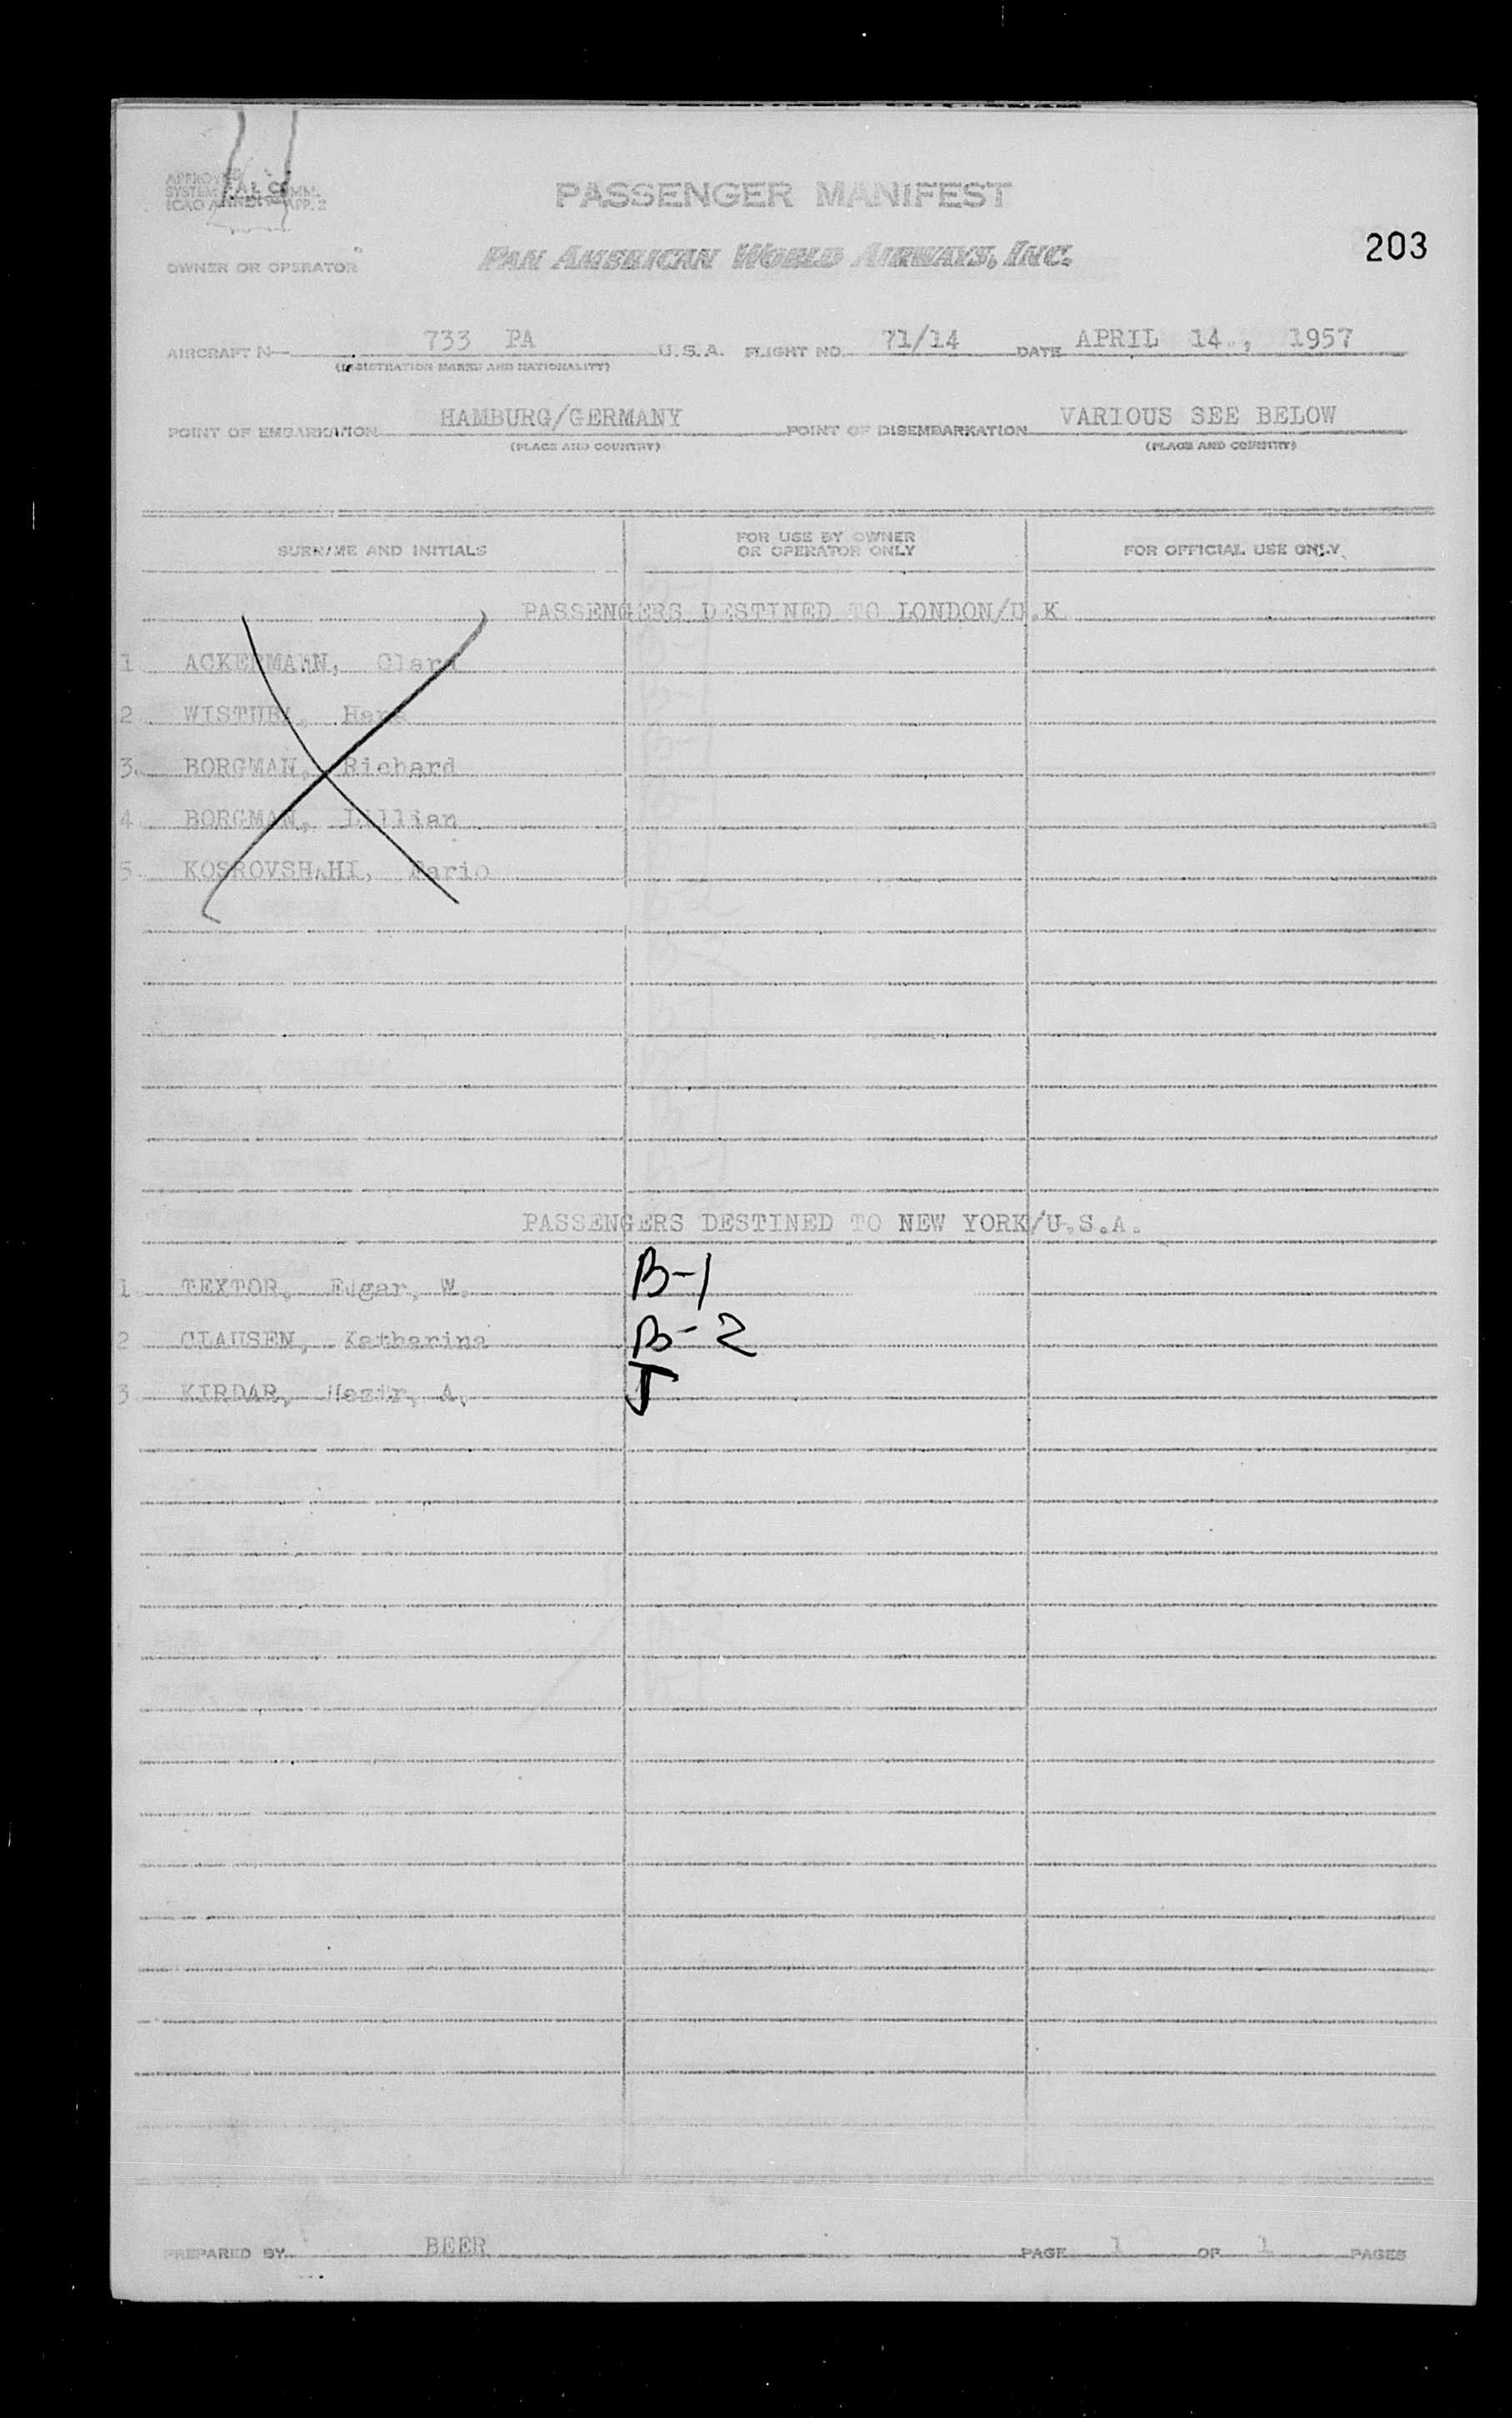 PASSENGER MANIFEST
PAN AMERICAN WORLD AIRWAYS, INC.
203
OWNER OR OPERATOR
AIRCRAFT N— 733 PA U.S.A. FLIGHT NO. 71/14 DATE APRIL 14., 1957
(REGISTRATION MARKS AND NATIONALITY)
POINT OF EMBARKATION HAMBURG/GERMANY POINT OF DISEMBARKATION VARIOUS SEE BELOW
(PLACE AND COUNTRY) (PLACE AND COUNTRY)
SURNAME AND INITIALS
FOR USE BY OWNER
OR OPERATOR ONLY
FOR OFFICIAL USE ONLY
PASSENGERS DESTINED TO LONDON/U.K.
1. ACKERMANN, Clara
2. Hans
3. BORGMAN, Richard
4. BORGMAN, Lillian
5. KOSROVSHAHI,
PASSENGERS DESTINED TO NEW YORK/U.S.A.
1. TEXTOR, Edgar, W. B-1
2. CLAUSEN, Katharina B-2
3. KIRDAR, A. J
PREPARED BY BEER PAGE 1 OF 1 PAGES